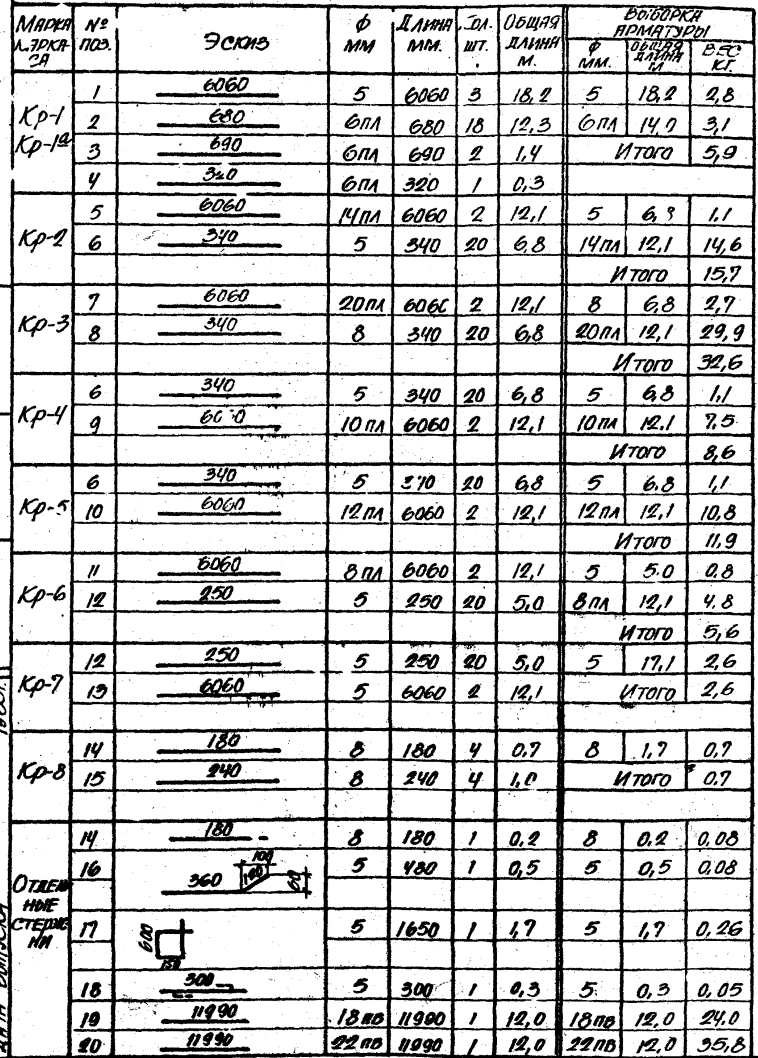 Марка каркаса № поз. Эскиз ϕ мм Длина мм. Кол. шт. Общая длина м. Выборка арматуры
ϕ мм. Общая длина м Вес кг.
Кр-1 Кр-1а 1 6060 5 6060 3 18,2 5 18,2 2,8
2 680 6ПЛ 680 18 12,3 6ПЛ 14,0 3,1
3 690 6ПЛ 690 2 1,4 Итого 5,9
4 320 6ПЛ 320 1 0,3
Кр-2 5 6060 14ПЛ 6060 2 12,1 5 1,1
6 340 5 340 20 6,8 14ПЛ 12,1 14,6
Итого 15,7
Кр-3 7 6060 20ПЛ 6060 2 12,1 8 6,8 2,7
8 340 8 340 20 6,8 20ПЛ 12,1 29,9
Итого 32,6
Кр-4 6 340 5 340 20 6,8 5 6,8 1,1
9 10ПЛ 6060 2 12,1 10ПЛ 12,1 7,5
Итого 8,6
Кр-5 6 340 5 20 6,8 5 6,8 1,1
10 6060 12ПЛ 6060 2 12,1 12ПЛ 12,1 10,8
Итого 11,9
Кр-6 11 6060 8ПЛ 6060 2 12,1 5 5.0 0.8
12 250 5 250 20 5,0 8ПЛ 12,1 4.8
Итого 5,6
Кр-7 12 250 5 250 20 5,0 5 17,1 2,6
13 6060 5 6060 2 12,1 Итого 2,6
Кр-8 14 180 8 180 4 0,7 8 1,7 0,7
15 240 8 240 4 1,0 Итого 0.7
Отдельные стержни 14 180 8 180 1 0,2 8 0,2 0,08
16 360 100 100 60 5 480 1 0,5 5 0,5 0,08
17 600 150 5 1650 1 1,7 5 1,7 0,26
18 300 5 300 1 0,3 5 0,3 0,05
19 11990 18ПВ 11990 1 12,0 18ПВ 12,0 24.0
20 11990 22ПВ 11990 1 12,0 22ПВ 12,0 35,8
Дата выпуска